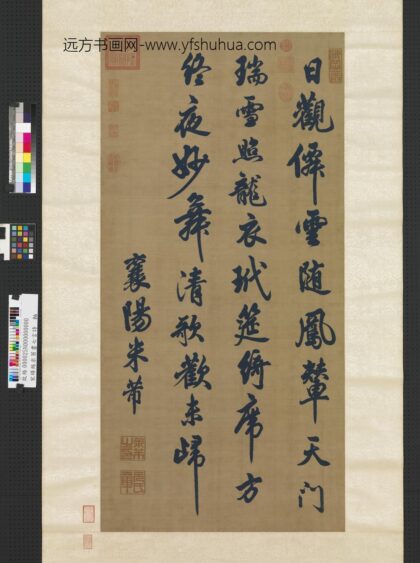 远方书画网-www.yfshuhua.com
日觀僊雲随鳳輦天门
瑞雪照龍衣玳筵綺席方
終夜妙舞清歌歡未歸
襄陽米芾